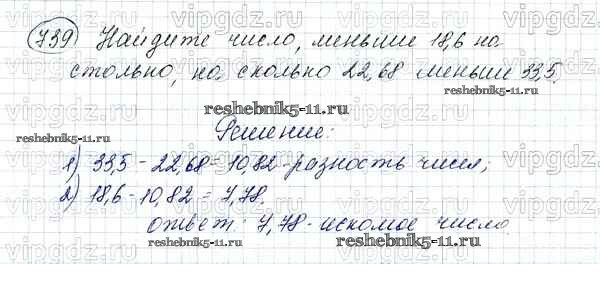 739 Найдите число, меньше 18,6 на
столько, на сколько 22,68 меньше 33,5.
reshebnik5-11.ru
reshebnik5-11.ru Решение: reshebnik5-11.ru
1) 33,5 - 22,68 = 10,82 - разность чисел;
2) 18,6 - 10,82 = 7,78.
ответ: 7,78 - искомое число.
reshebnik5-11.ru reshebnik5-11.ru